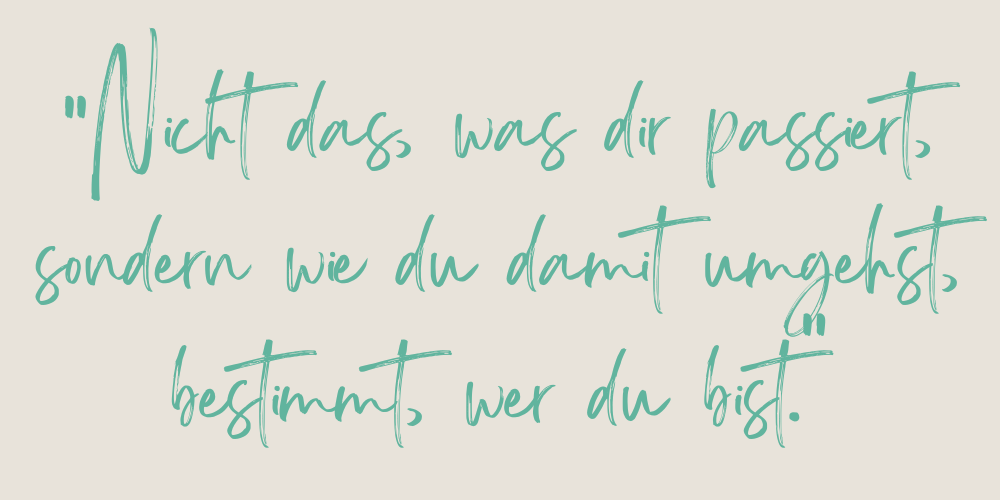 "Nicht das, was dir passiert,
sondern wie du damit umgehst,
bestimmt, wer du bist."